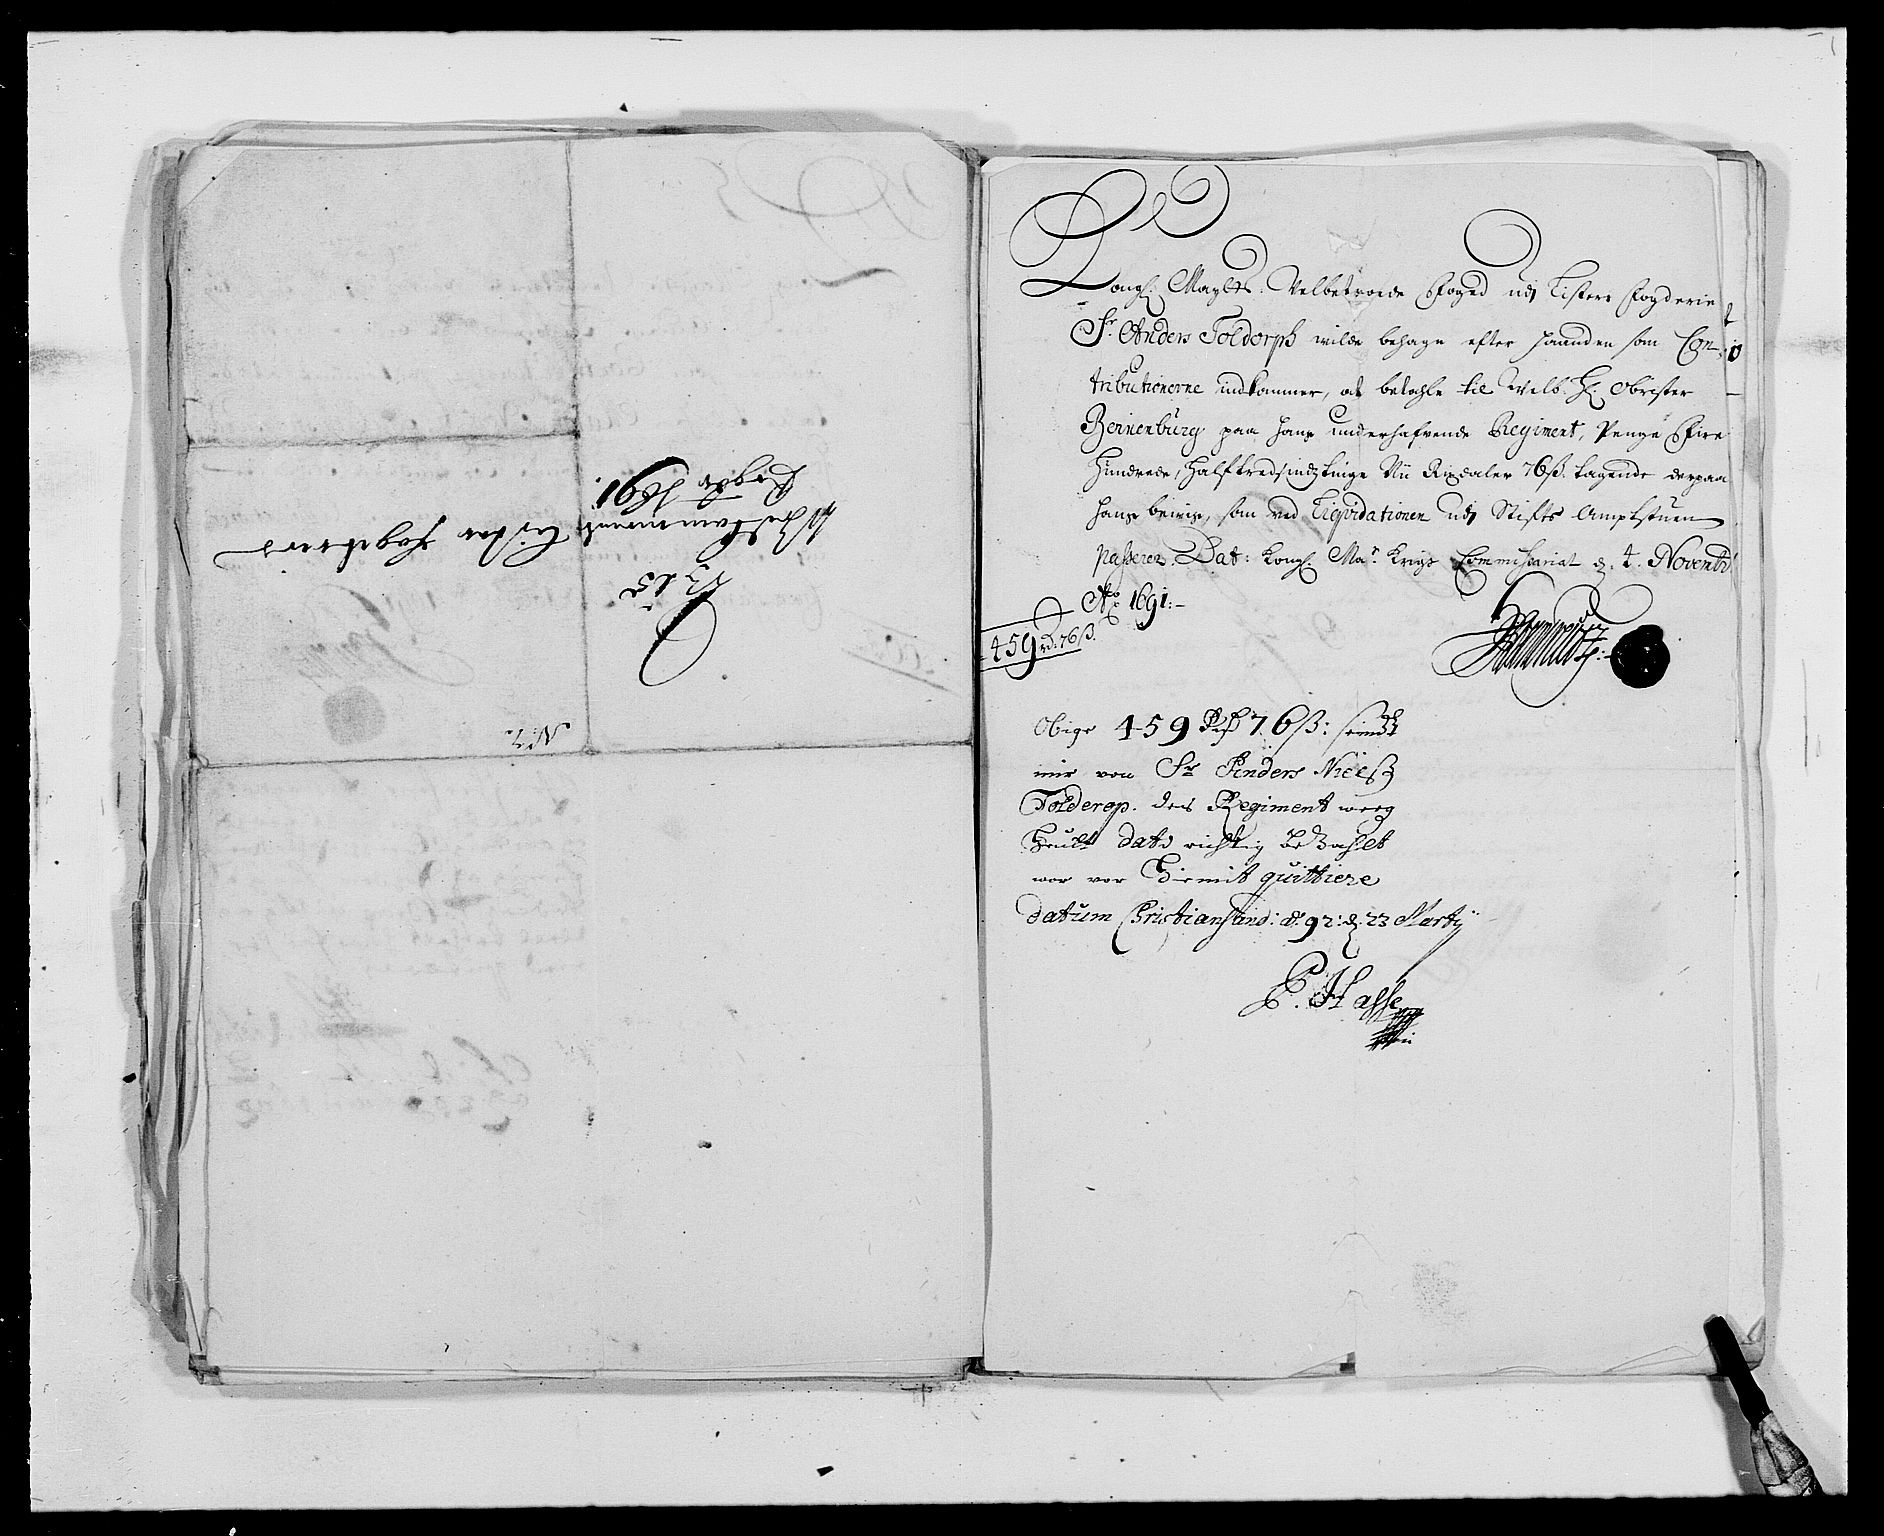 Kongl: Maÿts: Velbetroede Foged udj Lister Fogderie
Sr. Anders Toldorph wilde behage efter haanden som Con-
tributionerne indkommer, at betahle til Welb: H: Obrister
Bennenburg paa hans underhafvende Regiment, Penge Fire
Hundrede, Halftredsindstiuge Nii Rixdaler 76 ß. tagende derpaa
hans beviis, som ved Liqvidationen udj Stifts Amptstuen
passerer. Dat: Kongl. Ma: Krigs Commissariat d. 4. Novembr
Ao 1691:-
459 rd. 76 ß.
Obige 459 Rd 76 ß: seindt
mir von Sr Anders Nielß
Tolderop. des Regiment weg
Heutt dato richtig beZahlt
wor vor Hiermit quittiere
datum Christiansand: ao. 92: d: 23 Marty
P. Hasse
No. 15
Lister Fogderie
1691.
No. 7.